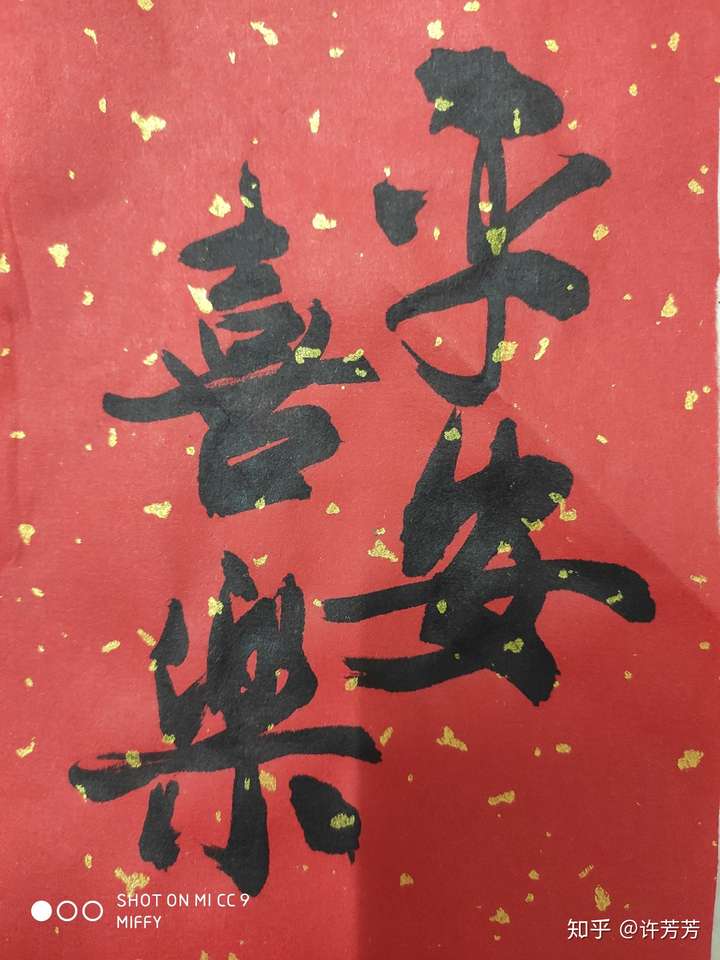 平安
喜樂
SHOT ON MI CC 9
MIFFY
知乎 @许芳芳